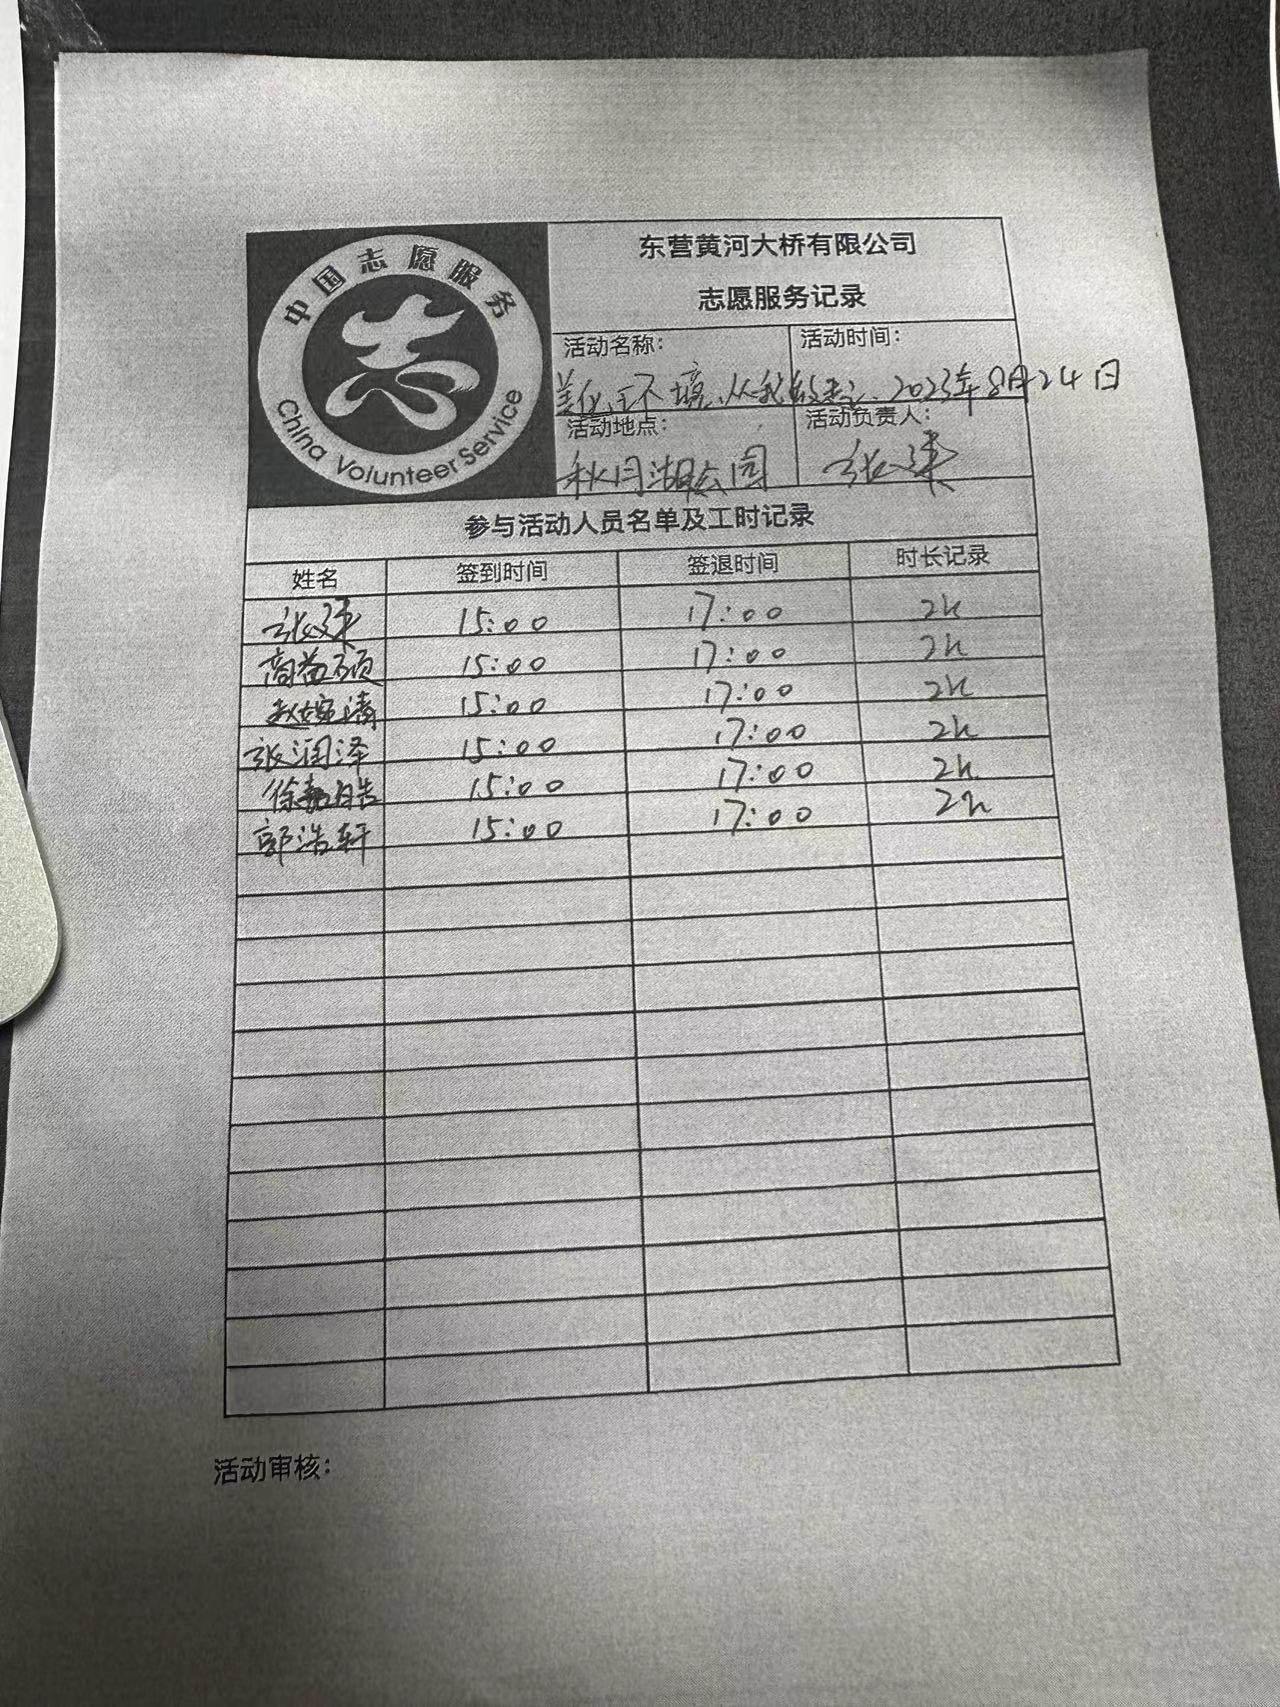 中国志愿服务
China Volunteer Service
东营黄河大桥有限公司
志愿服务记录
活动名称： 活动时间：
美化环境，从我做起 2023年8月24日
活动地点： 活动负责人：
秋月湖公园
参与活动人员名单及工时记录
姓名 签到时间 签退时间 时长记录
15:00 17:00 2h
15:00 17:00 2h
15:00 17:00 2h
张润泽 15:00 17:00 2h
15:00 17:00 2h
郭浩轩 15:00 17:00 2h
活动审核：